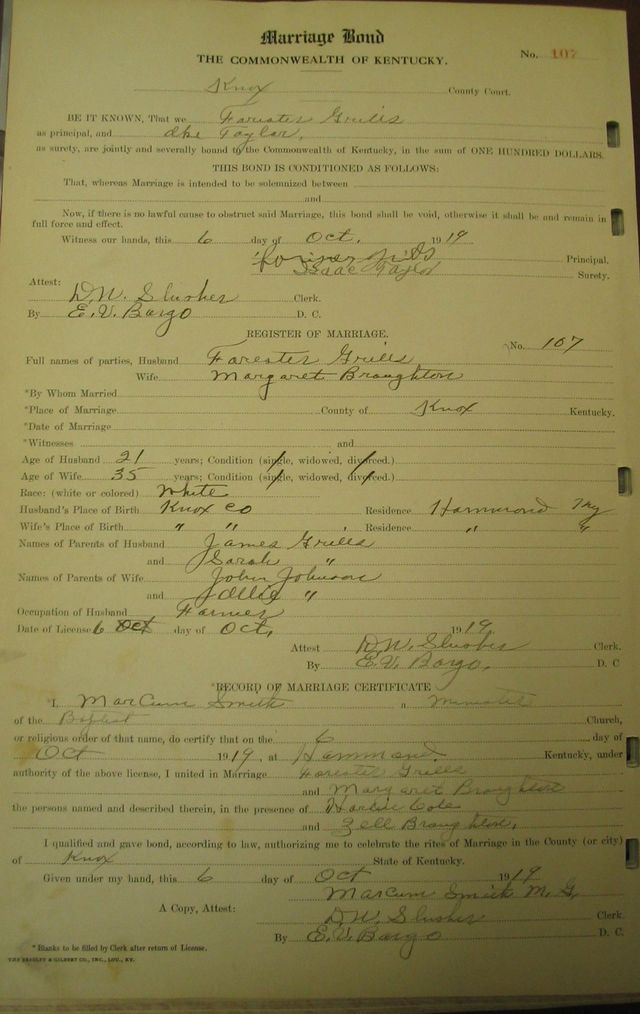 Marriage Bond
THE COMMONWEALTH OF KENTUCKY.
No. 107
Knox County Court.
BE IT KNOWN, That we Forester Grills
as principal, and Ike Taylor,
as surety, are jointly and severally bound to the Commonwealth of Kentucky, in the sum of ONE HUNDRED DOLLARS.
THIS BOND IS CONDITIONED AS FOLLOWS:
That, whereas Marriage is intended to be solemnized between
and
Now, if there is no lawful cause to obstruct said Marriage, this bond shall be void, otherwise it shall be and remain in
full force and effect.
Witness our hands, this 6 day of Oct. 1919
Principal.
Isaac Taylor Surety.
Attest:
D.W. Slusher Clerk.
By E.V. Bargo D. C.
REGISTER OF MARRIAGE.
No. 107
Full names of parties, Husband Forester Grills
Wife Margaret Broughton
*By Whom Married
*Place of Marriage County of Knox Kentucky.
*Date of Marriage
*Witnesses and
Age of Husband 21 years; Condition (single, widowed, divorced.)
Age of Wife 35 years; Condition (single, widowed, divorced.)
Race: (white or colored) White
Husband's Place of Birth Knox Co Residence Hammond Ky
Wife's Place of Birth " " Residence " "
Names of Parents of Husband James Grills
and Sarah "
Names of Parents of Wife John Johnson
and "
Occupation of Husband Farmer
Date of License 6 Oct day of Oct. 1919
Attest D.W. Slusher Clerk.
By E.V. Bargo. D. C
*RECORD OF MARRIAGE CERTIFICATE
*I, Marcum Smith a Minister
of the Baptist Church,
or religious order of that name, do certify that on the 6 day of
Oct 1919, at Hammond. Kentucky, under
authority of the above license, I united in Marriage Forester Grills
and Margaret Broughton
the persons named and described therein, in the presence of Harlin Cole
and Zell Broughton.
I qualified and gave bond, according to law, authorizing me to celebrate the rites of Marriage in the County (or city)
of Knox State of Kentucky.
Given under my hand, this 6 day of Oct 1919
Marcum Smith M. G.
A Copy, Attest: D.W. Slusher Clerk.
By E.V. Bargo D. C.
* Blanks to be filled by Clerk after return of License.
THE BRADLEY & GILBERT CO., INC., LOU., KY.